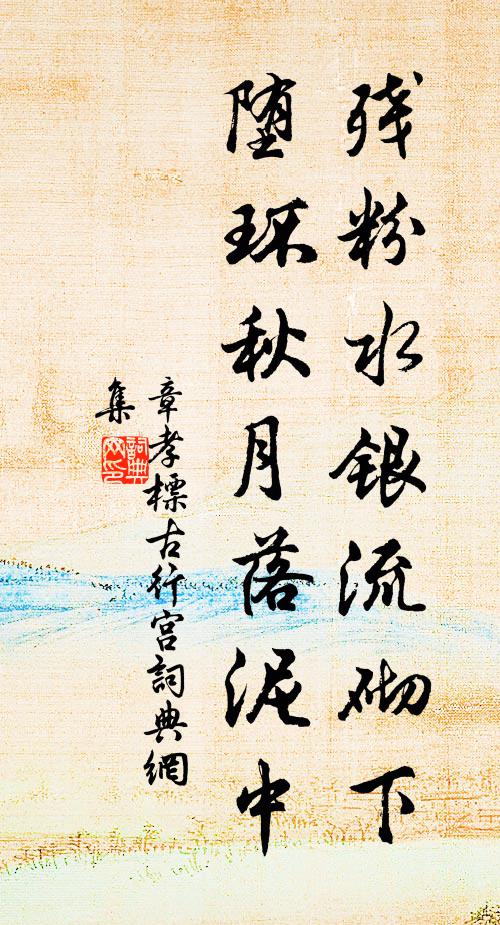 残粉水银流砌下
堕环秋月落泥中
章孝標古行宫詞典網
集
詞典